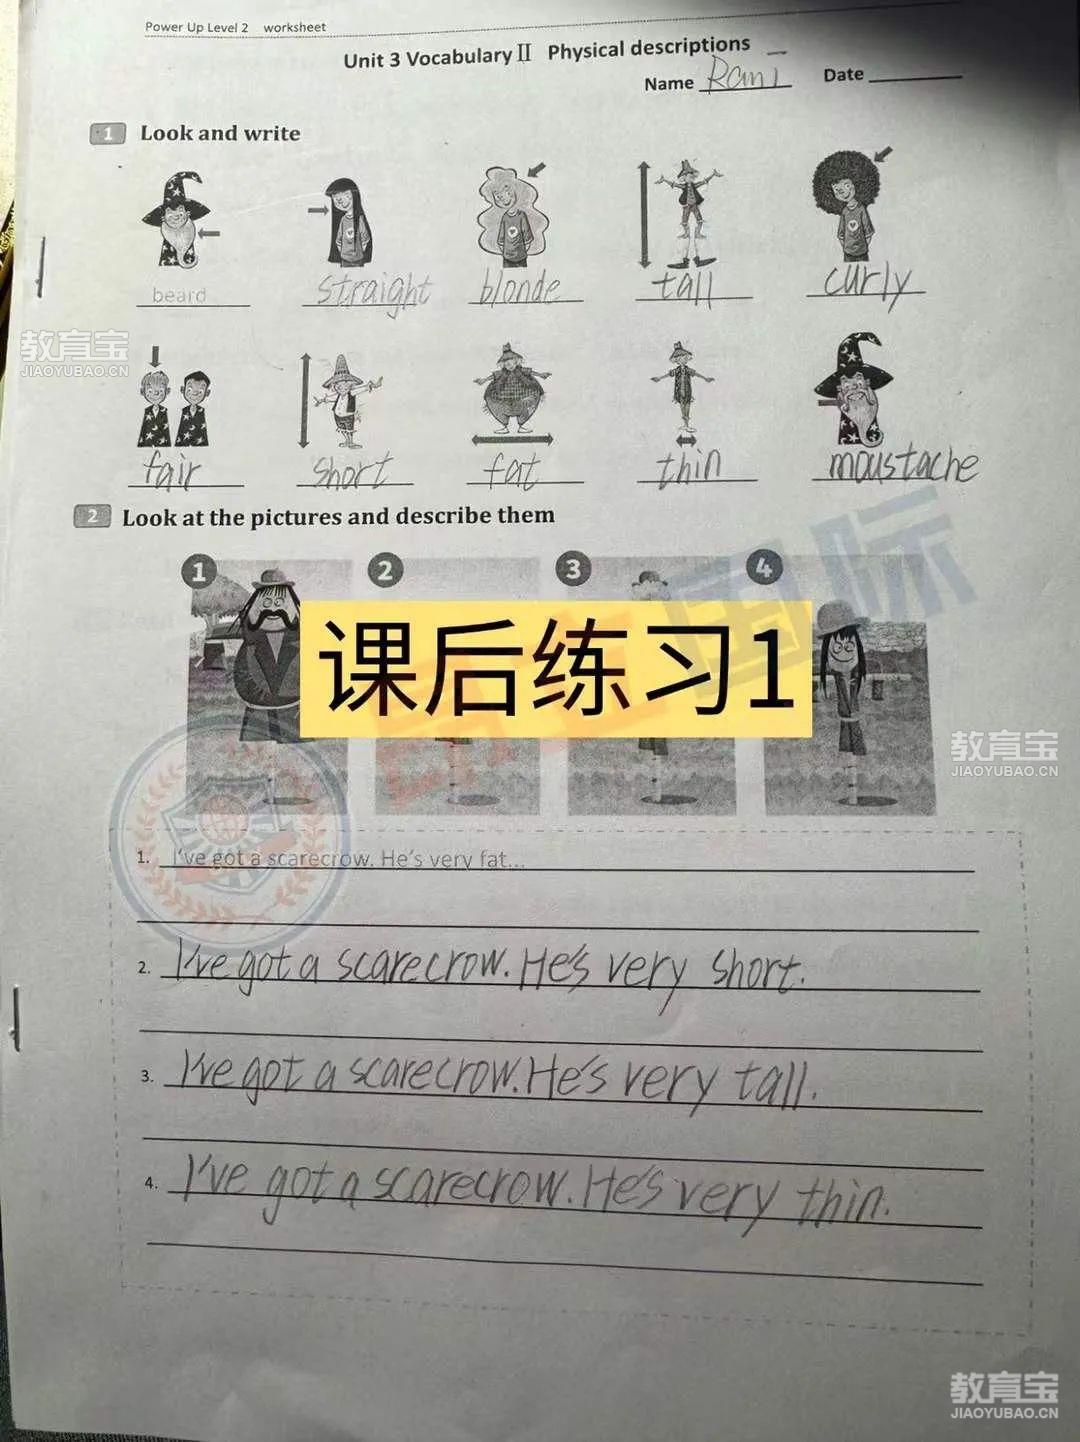 Power Up Level 2 worksheet
Unit 3 Vocabulary II Physical descriptions
Name Rani Date
1 Look and write
beard straight blonde tall curly
教育宝
JIAOYUBAO.CN
fair short fat thin moustache
2 Look at the pictures and describe them
1 2 3 4
国际
课后练习1
教育宝
JIAOYUBAO.CN
1. I've got a scarecrow. He's very fat...
2. I've got a scarecrow. He's very short.
3. I've got a scarecrow. He's very tall.
4. I've got a scarecrow. He's very thin.
教育宝
JIAOYUBAO.CN